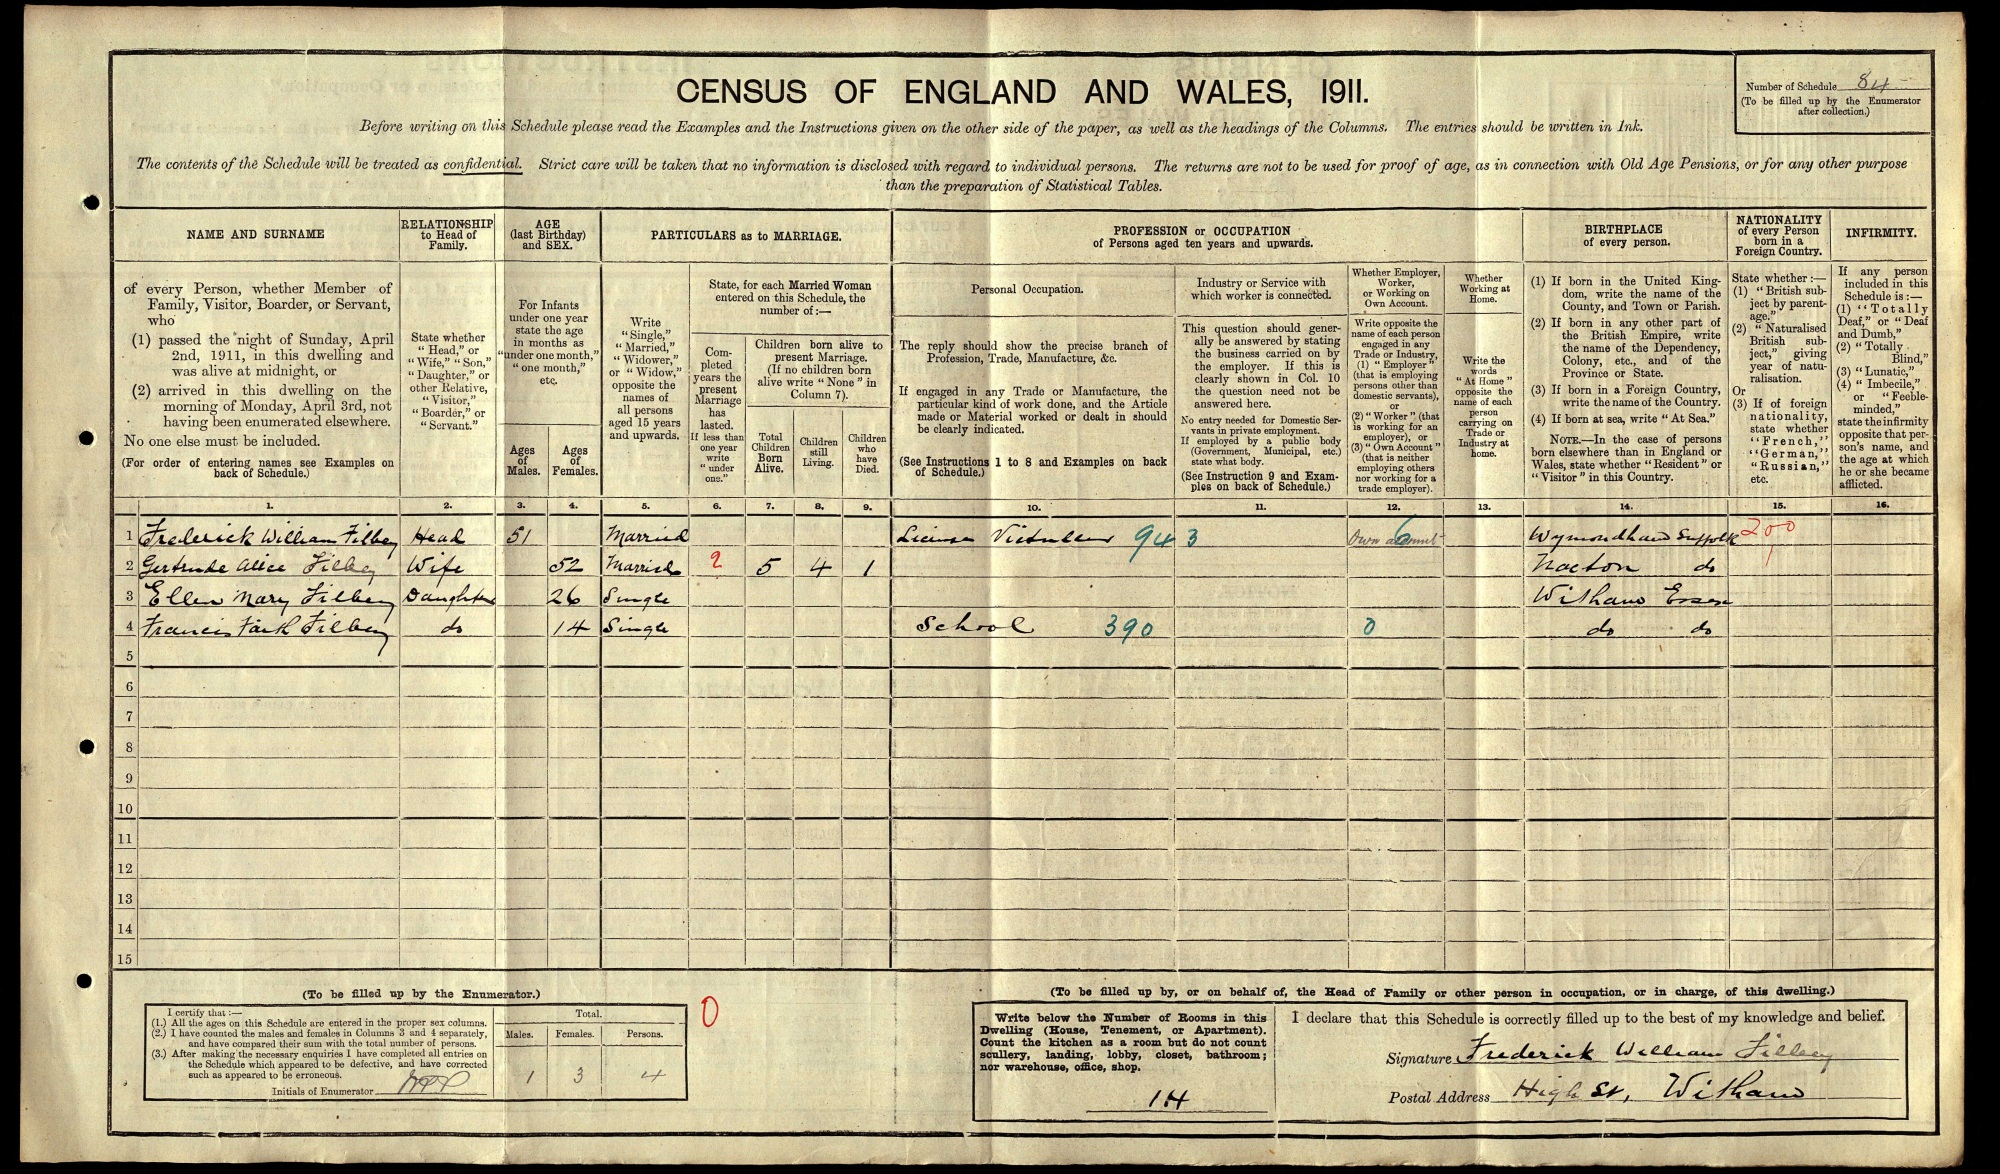 CENSUS OF ENGLAND AND WALES, 1911.
Number of Schedule 84
(To be filled up by the Enumerator
after collection.)
Before writing on this Schedule please read the Examples and the Instructions given on the other side of the paper, as well as the headings of the Columns. The entries should be written in Ink.
The contents of the Schedule will be treated as confidential. Strict care will be taken that no information is disclosed with regard to individual persons. The returns are not to be used for proof of age, as in connection with Old Age Pensions, or for any other purpose
than the preparation of Statistical Tables.
NAME AND SURNAME
RELATIONSHIP
to Head of
Family.
AGE
(last Birthday)
and SEX.
PARTICULARS as to MARRIAGE.
PROFESSION or OCCUPATION
of Persons aged ten years and upwards.
BIRTHPLACE
of every person.
NATIONALITY
of every Person
born in a
Foreign Country.
INFIRMITY.
of every Person, whether Member of
Family, Visitor, Boarder, or Servant,
who
(1) passed the night of Sunday, April
2nd, 1911, in this dwelling and
was alive at midnight, or
(2) arrived in this dwelling on the
morning of Monday, April 3rd, not
having been enumerated elsewhere.
No one else must be included.
(For order of entering names see Examples on
back of Schedule.)
State whether
"Head," or
"Wife," "Son,"
"Daughter," or
other Relative,
"Visitor,"
"Boarder," or
"Servant."
For Infants
under one year
state the age
in months as
"under one month,"
"one month,"
etc.
Ages
of
Males.
Ages
of
Females.
Write
"Single,"
"Married,"
"Widower,"
or "Widow,"
opposite the
names of
all persons
aged 15 years
and upwards.
State, for each Married Woman
entered on this Schedule, the
number of:—
Com-
pleted
years the
present
Marriage
has
lasted.
If less than
one year
write
"under
one."
Children born alive to
present Marriage.
(If no children born
alive write "None" in
Column 7).
Total
Children
Born
Alive.
Children
still
Living.
Children
who
have
Died.
Personal Occupation.
The reply should show the precise branch of
Profession, Trade, Manufacture, &c.
If engaged in any Trade or Manufacture, the
particular kind of work done, and the Article
made or Material worked or dealt in should
be clearly indicated.
(See Instructions 1 to 8 and Examples on back
of Schedule.)
Industry or Service with
which worker is connected.
This question should gener-
ally be answered by stating
the business carried on by
the employer. If this is
clearly shown in Col. 10
the question need not be
answered here.
No entry needed for Domestic Ser-
vants in private employment.
If employed by a public body
(Government, Municipal, etc.)
state what body.
(See Instruction 9 and Exam-
ples on back of Schedule.)
Whether Employer,
Worker,
or Working on
Own Account.
Write opposite the
name of each person
engaged in any
Trade or Industry,
(1) "Employer"
(that is employing
persons other than
domestic servants),
or
(2) "Worker" (that
is working for an
employer), or
(3) "Own Account"
(that is neither
employing others
nor working for a
trade employer).
Whether
Working at
Home.
Write the
words
"At Home"
opposite the
name of each
person
carrying on
Trade or
Industry at
home.
(1) If born in the United King-
dom, write the name of the
County, and Town or Parish.
(2) If born in any other part of
the British Empire, write
the name of the Dependency,
Colony, etc., and of the
Province or State.
(3) If born in a Foreign Country,
write the name of the Country.
(4) If born at sea, write "At Sea."
NOTE.—In the case of persons
born elsewhere than in England or
Wales, state whether "Resident" or
"Visitor" in this Country.
State whether :—
(1) "British sub-
ject by parent-
age."
(2) "Naturalised
British sub-
ject," giving
year of natu-
ralisation.
Or
(3) If of foreign
nationality,
state whether
"French,"
"German,"
"Russian,"
etc.
If any person
included in this
Schedule is :—
(1) "Totally
Deaf," or "Deaf
and Dumb,"
(2) "Totally
Blind,"
(3) "Lunatic,"
(4) "Imbecile,"
or "Feeble-
minded,"
state the infirmity
opposite that per-
son's name, and
the age at which
he or she became
afflicted.
1. 2. 3. 4. 5. 6. 7. 8. 9. 10. 11. 12. 13. 14. 15. 16.
1 Frederick William Filbey Head 51 Married License Victuller 943 Own account 6 Wymondham Suffolk 200
2 Gertrude Alice Filbey Wife 52 Married 2 5 4 1 Nacton do 1
3 Ellen Mary Filbey Daughter 26 Single Witham Essex
4 Francis Faith Filbey do 14 Single School 390 0 do do
5
6
7
8
9
10
11
12
13
14
15
(To be filled up by the Enumerator.)
I certify that :—
(1.) All the ages on this Schedule are entered in the proper sex columns.
(2.) I have counted the males and females in Columns 3 and 4 separately,
and have compared their sum with the total number of persons.
(3.) After making the necessary enquiries I have completed all entries on
the Schedule which appeared to be defective, and have corrected
such as appeared to be erroneous.
Initials of Enumerator
Total.
Males. Females. Persons.
1 3 4
0
(To be filled up by, or on behalf of, the Head of Family or other person in occupation, or in charge, of this dwelling.)
Write below the Number of Rooms in this
Dwelling (House, Tenement, or Apartment).
Count the kitchen as a room but do not count
scullery, landing, lobby, closet, bathroom;
nor warehouse, office, shop.
14
I declare that this Schedule is correctly filled up to the best of my knowledge and belief.
Signature Frederick William Filbey
Postal Address High St, Witham